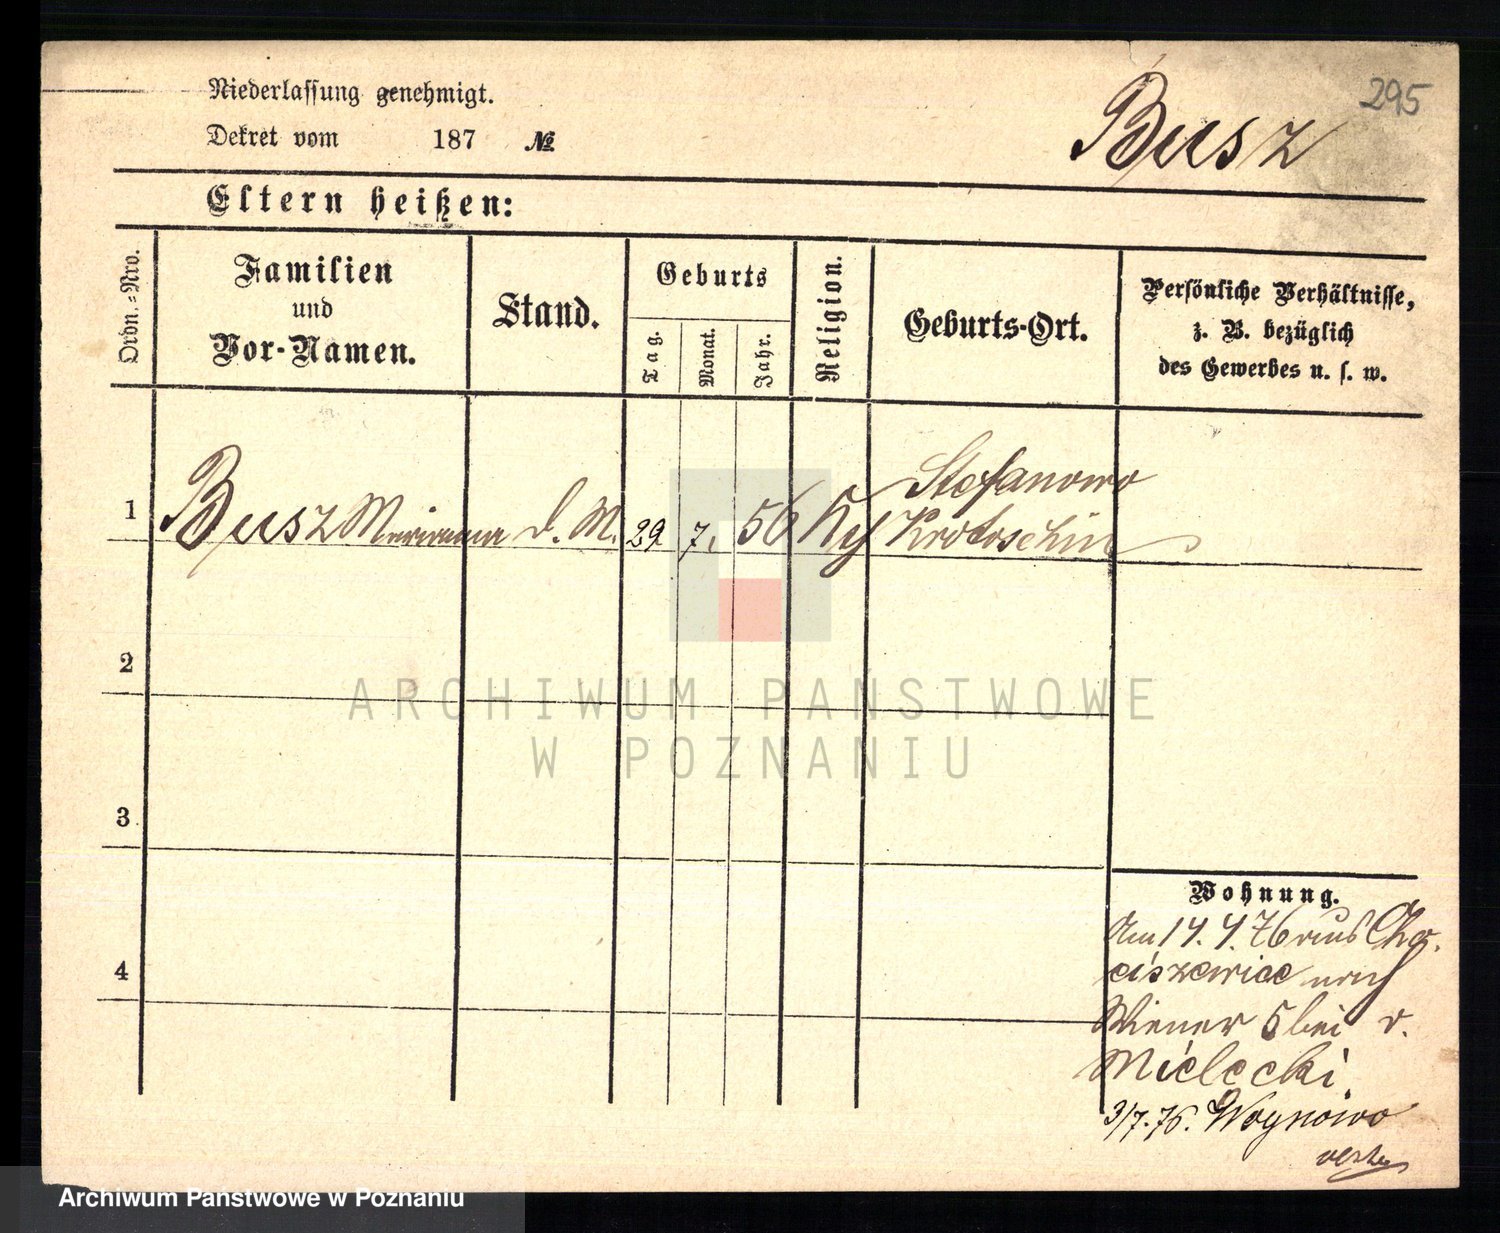 Niederlassung genehmigt.
Dekret vom 187 №
Busz
295
Eltern heißen:
Ordn.-Nro.
Familien
und
Vor-Namen.
Stand.
Geburts
Tag.
Monat.
Jahr.
Religion.
Geburts-Ort.
Persönliche Verhältnisse,
z. B. bezüglich
des Gewerbes u. s. w.
1 Busz Marianna d. M. 29 7. 56 Stefanowo
Krotoschin
2
3
4
Wohnung.
Am 14. 4. 76 aus Cho-
ciszewice nach
Wiener 5 bei v.
Mielecki.
3/7. 76. Woynowo
ARCHIWUM PAŃSTWOWE
W POZNANIU
Archiwum Państwowe w Poznaniu